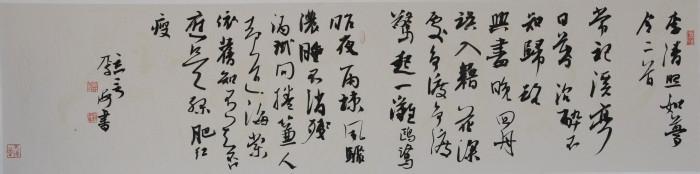 李清照如夢
令二首
常記溪亭
日暮沉醉不
知歸路
興盡晚回舟
誤入藕花深
處爭渡爭渡
驚起一灘鷗鷺
昨夜雨疎風驟
濃睡不消殘
酒試問捲簾人
却道海棠
依舊知否知否
應是綠肥紅
瘦
書